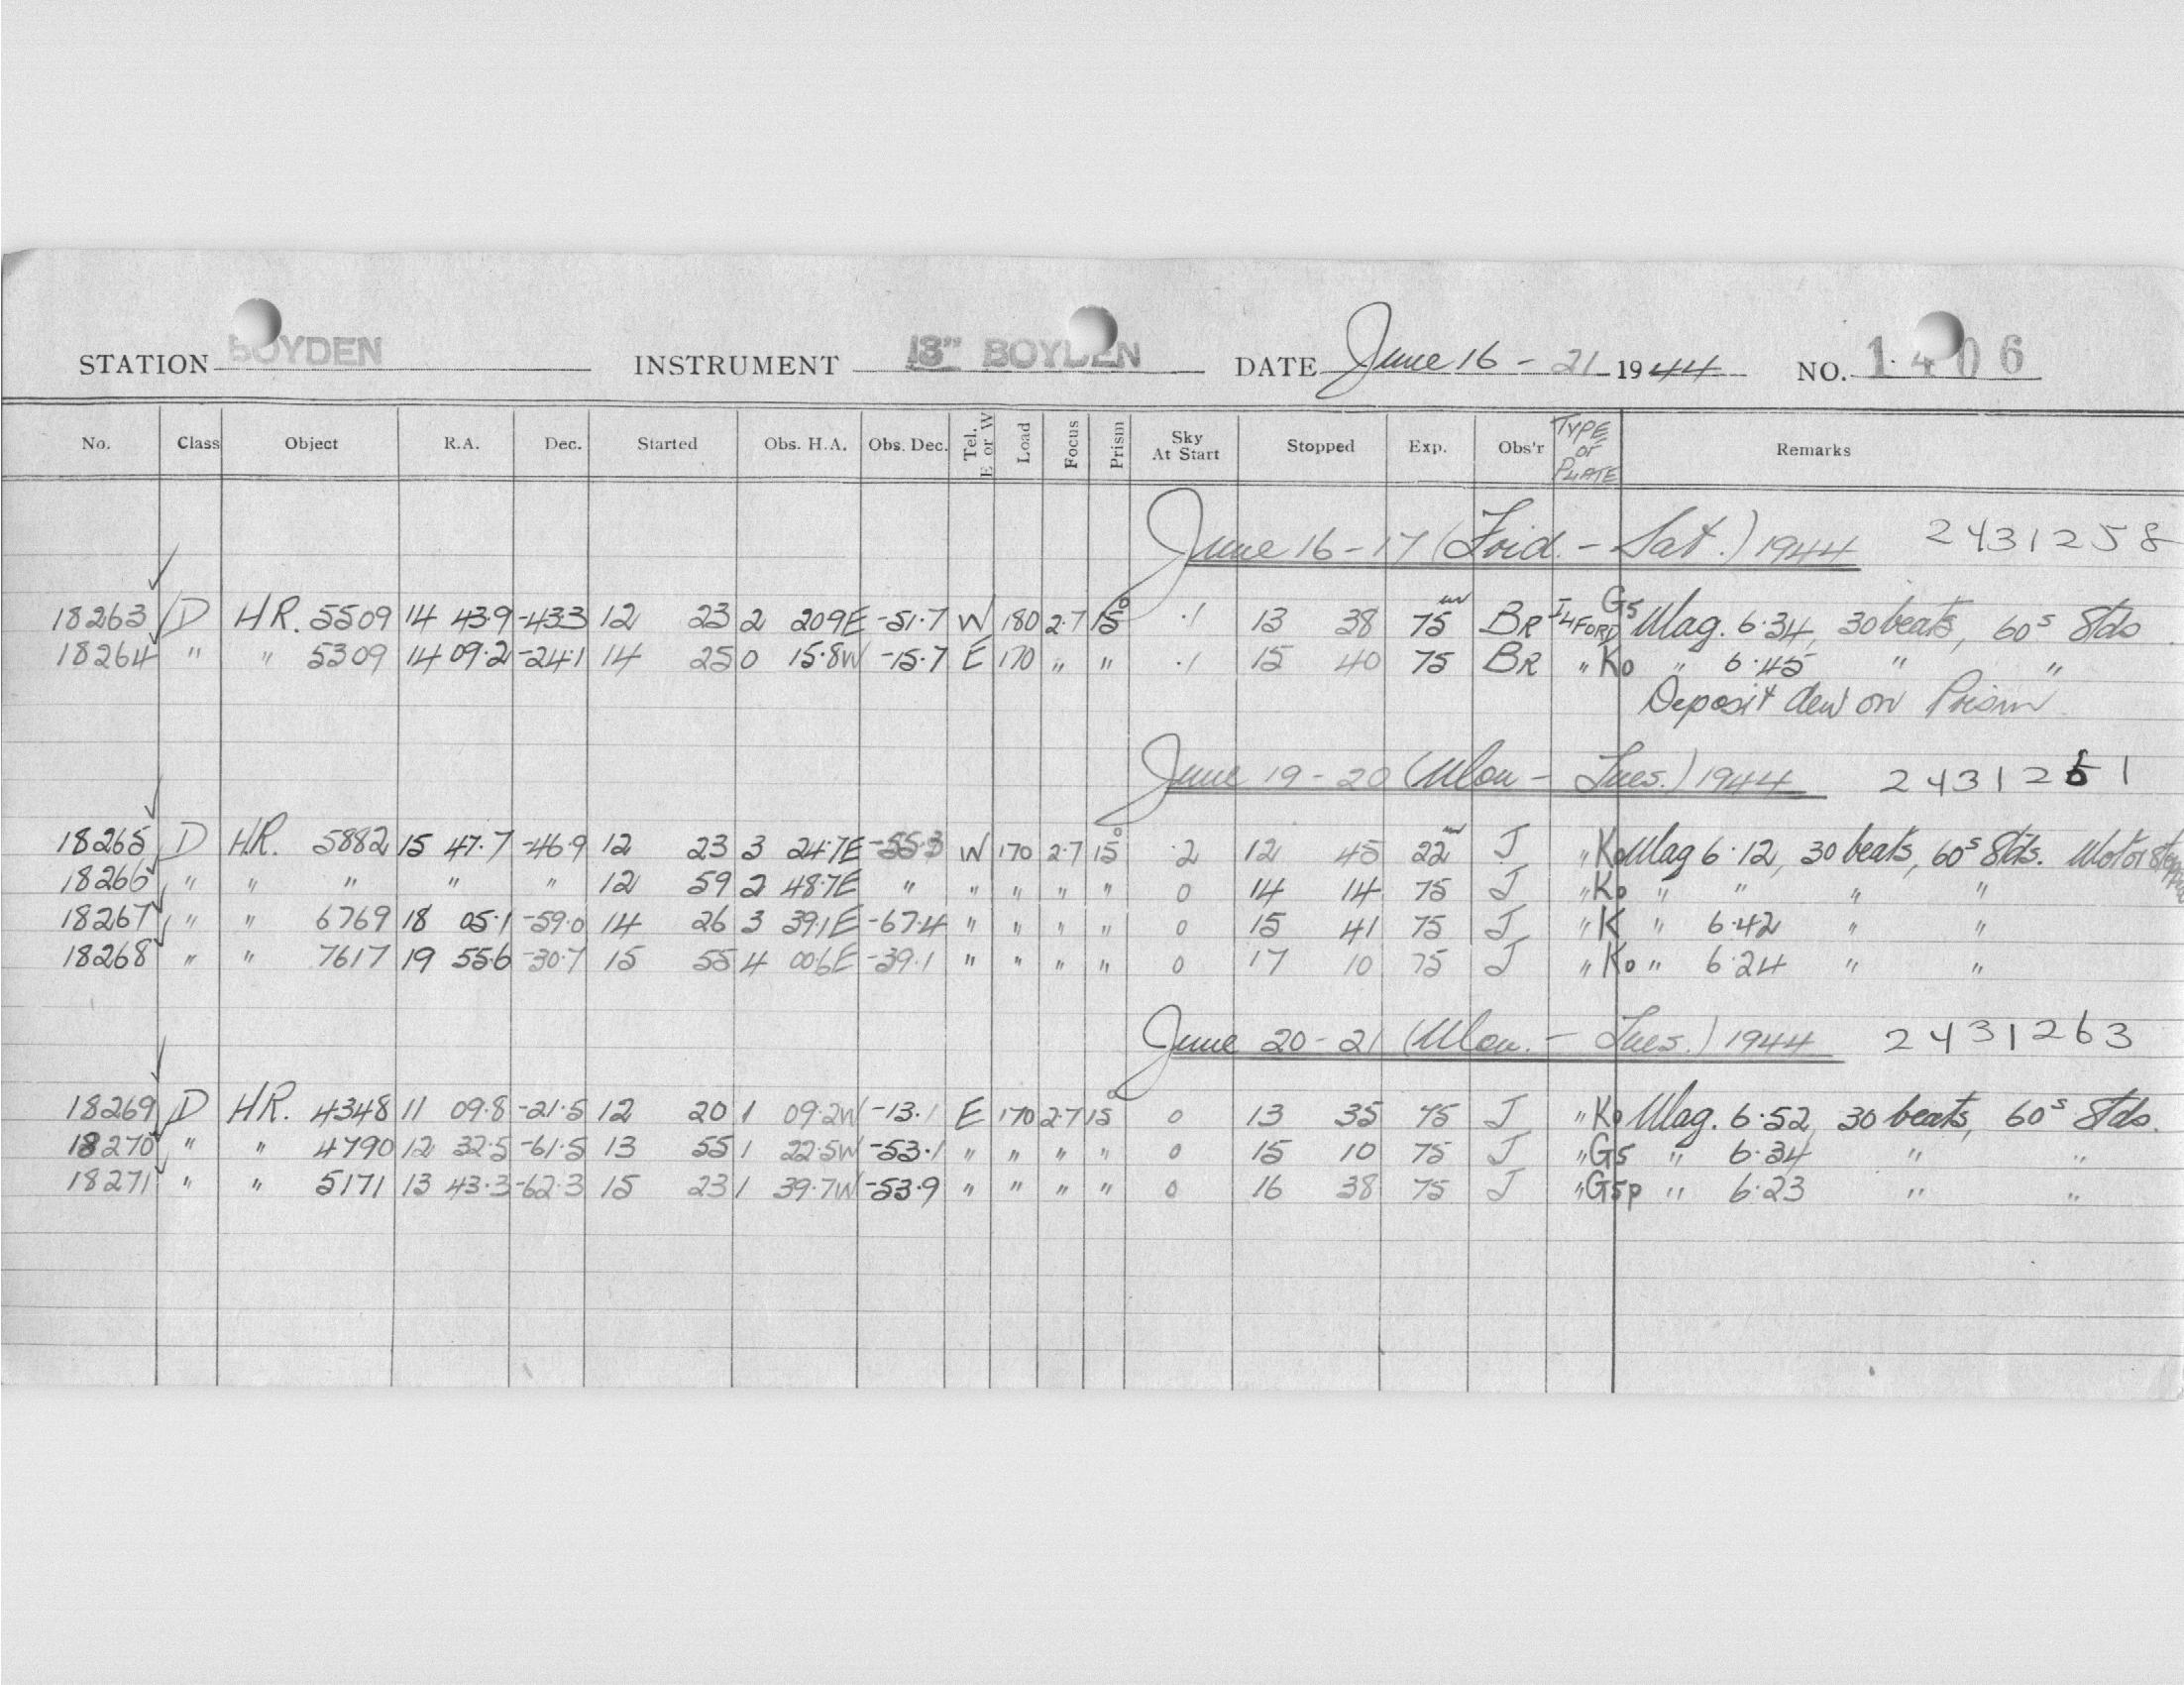 STATION BOYDEN INSTRUMENT 13" BOYDEN DATE June 16 - 21 1944 NO. 1406
No. Class Object R.A. Dec. Started Obs. H.A. Obs. Dec. Tel. E or W Load Focus Prism Sky At Start Stopped Exp. Obs'r TYPE OF PLATE Remarks
June 16-17 (Frid. - Sat.) 1944 2431258
18263 D HR. 5509 14 43.9 -43.3 12 23 2 20.9E -51.7 W 180 2.7 15° .1 13 38 75m BR ILFORD G5 Mag. 6.34, 30 beats, 60s Stds
18264 " " 5309 14 09.2 -24.1 14 25 0 15.8W -15.7 E 170 " " .1 15 40 75 BR " Ko " 6.45 " "
Deposit dew on Prism
June 19-20 (Mon - Tues.) 1944 2431261
18265 D HR. 5882 15 47.7 -46.9 12 23 3 24.7E -55.3 W 170 2.7 15° .2 12 45 22m J " Ko Mag 6.12, 30 beats, 60s Stds. Motor stopped
18266 " " " " " 12 59 2 48.7E " " " " " 0 14 14 75 J " Ko " " " "
18267 " " 6769 18 05.1 -59.0 14 26 3 39.1E -67.4 " " " " 0 15 41 75 J " K " 6.42 " "
18268 " " 7617 19 55.6 -30.7 15 55 4 00.6E -39.1 " " " " 0 17 10 75 J " Ko " 6.24 " "
June 20-21 (Mon. - Tues.) 1944 2431263
18269 D HR. 4348 11 09.8 -21.5 12 20 1 09.2W -13.1 E 170 2.7 15° 0 13 35 75 J " Ko Mag. 6.52, 30 beats, 60s Stds.
18270 " " 4790 12 32.5 -61.5 13 55 1 22.5W -53.1 " " " " 0 15 10 75 J " G5 " 6.34 " "
18271 " " 5171 13 43.3 -62.3 15 23 1 39.7W -53.9 " " " " 0 16 38 75 J " G5p " 6.23 " "